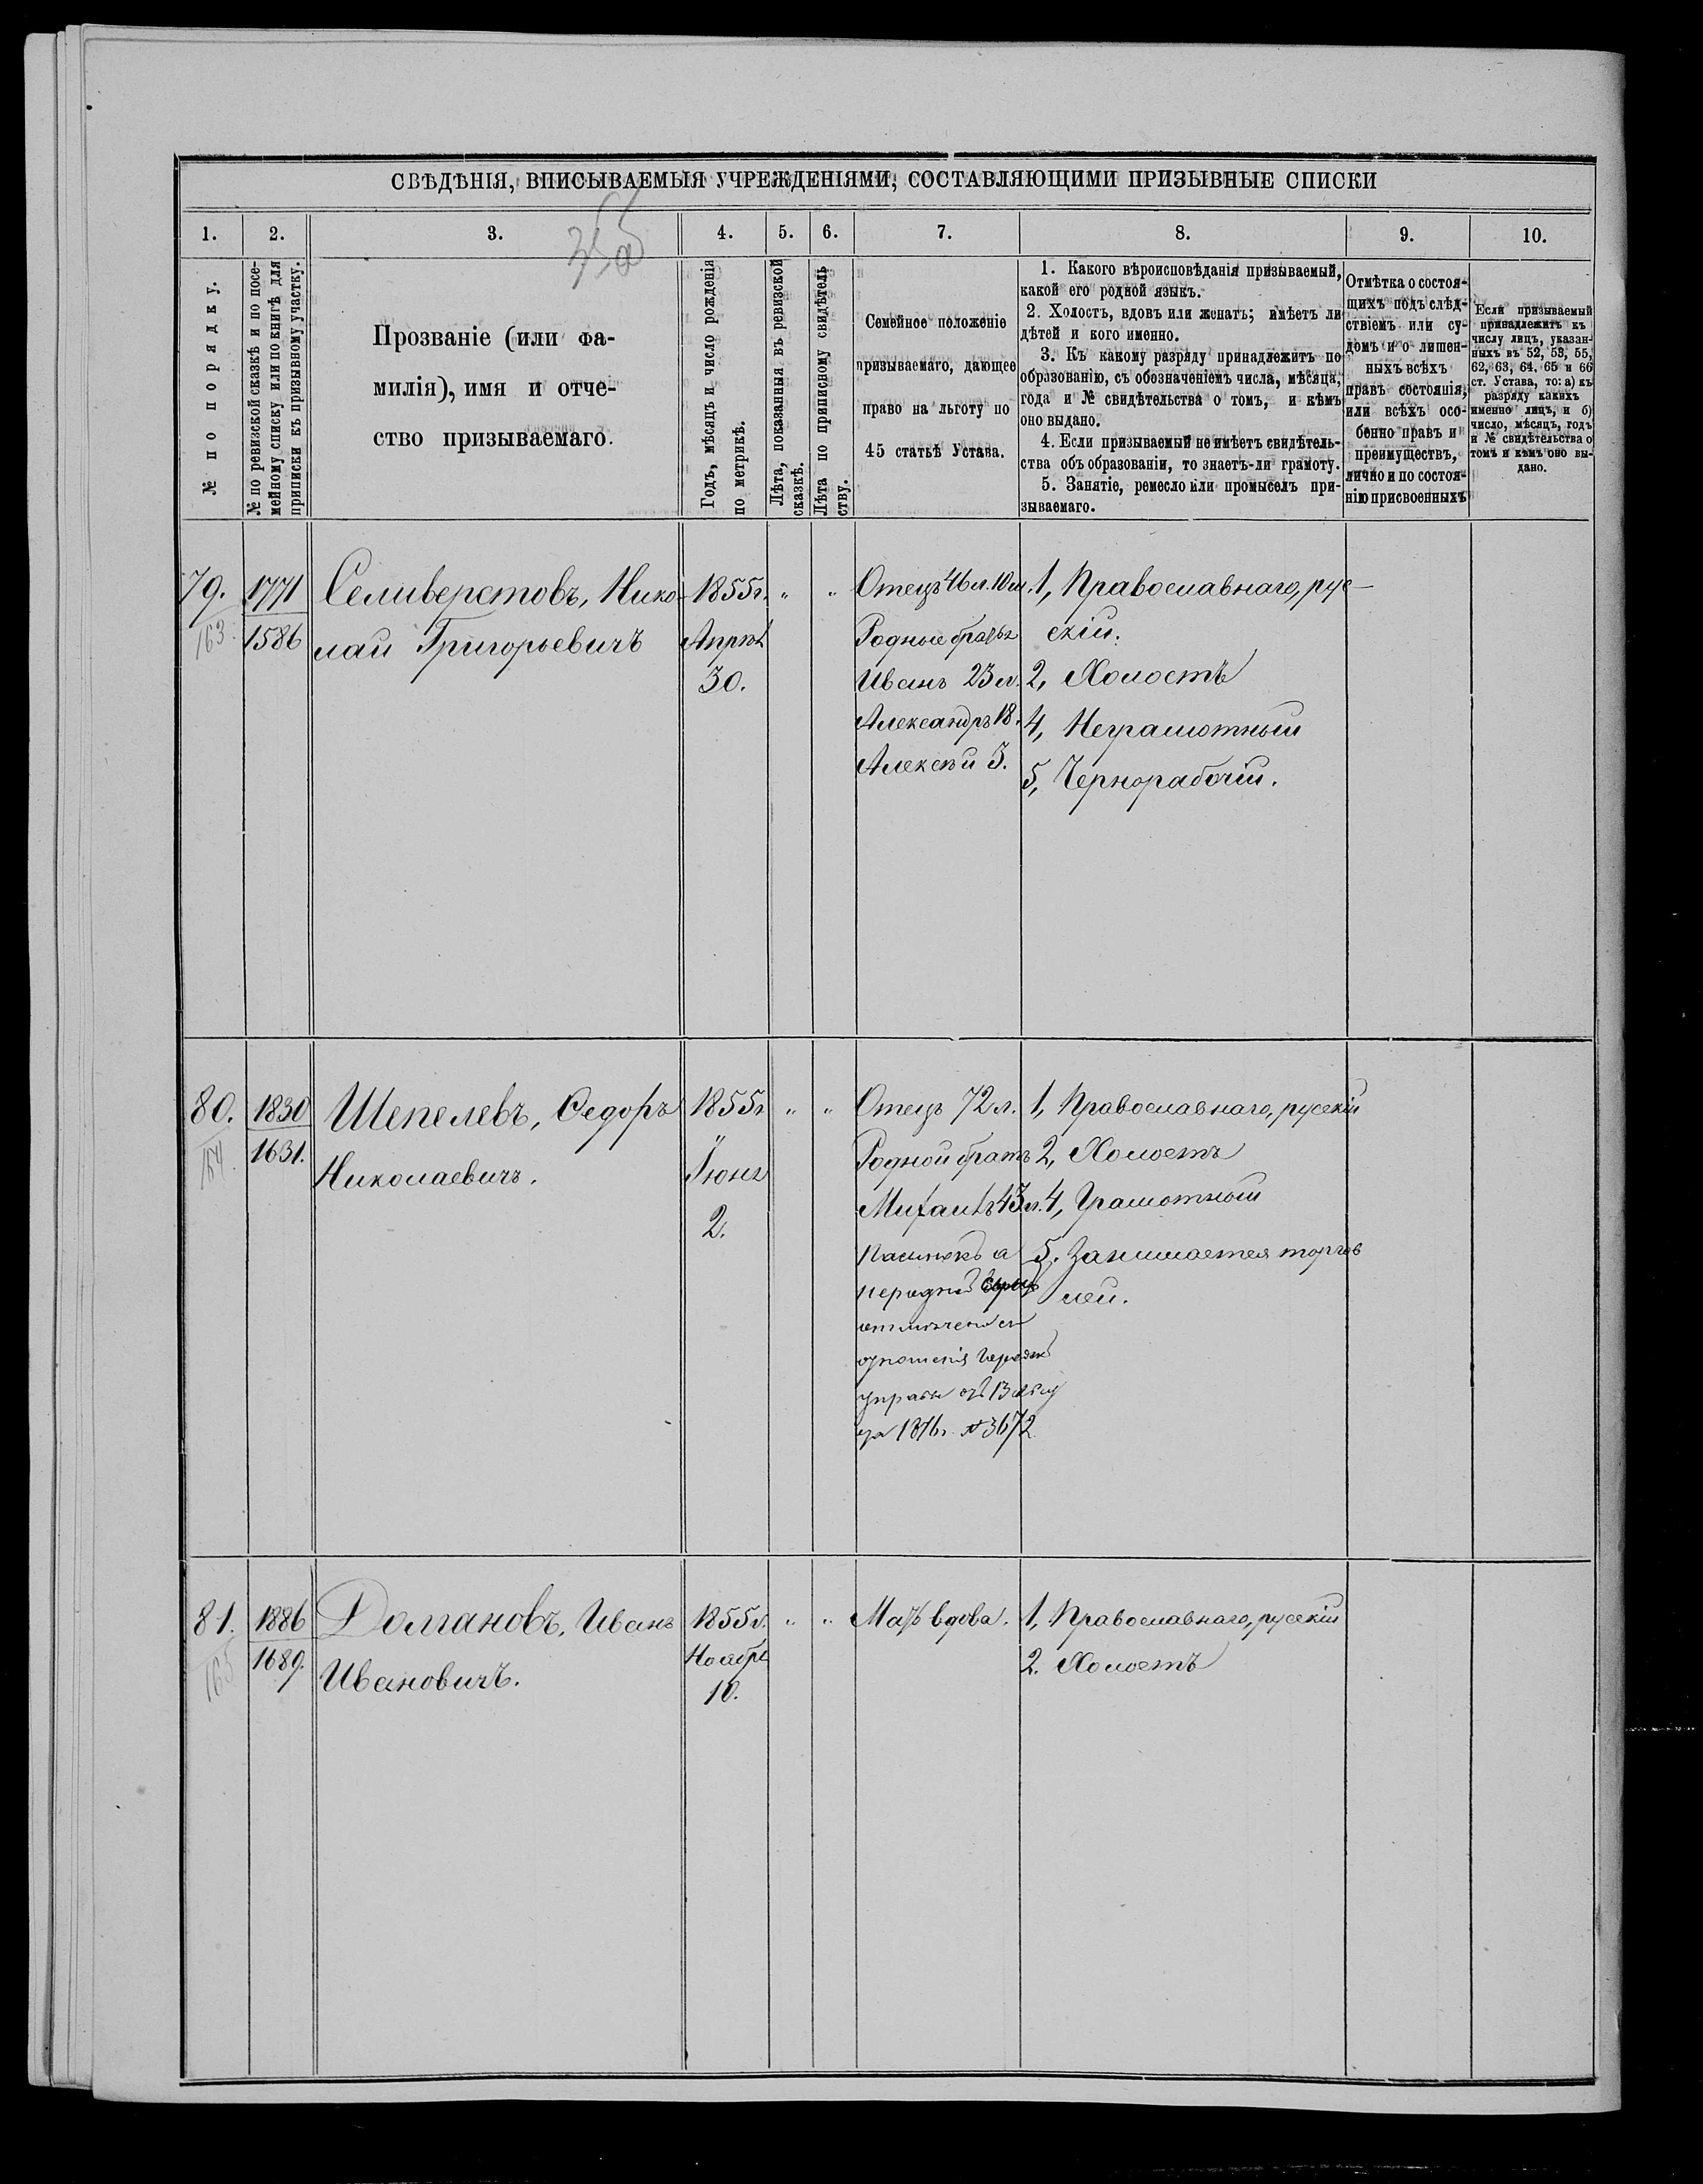 СВѢДѢНІЯ, ВПИСЫВАЕМЫЯ УЧРЕЖДЕНІЯМИ, СОСТАВЛЯЮЩИМИ ПРИЗЫВНЫЕ СПИСКИ
1. 2. 3. 4. 5. 6. 7. 8. 9. 10.
№ по порядку.
№ по ревизской сказкѣ и по посе-
мейному списку или по книгѣ для
приписки къ призывному участку.
Прозваніе (или фа-
милія), имя и отче-
ство призываемаго.
Годъ, мѣсяцъ и число рожденія
по метрикѣ.
Лѣта, показанныя въ ревизской
сказкѣ.
Лѣта по приписному свидѣтель
ству.
Семейное положеніе
призываемаго, дающее
право на льготу по
45 статьѣ Устава.
1. Какого вѣроисповѣданія призываемый,
какой его родной языкъ.
2. Холостъ, вдовъ или женатъ; имѣетъ ли
дѣтей и кого именно.
3. Къ какому разряду принадлежитъ по
образованію, съ обозначеніемъ числа, мѣсяца,
года и № свидѣтельства о томъ, и кѣмъ
оно выдано.
4. Если призываемый не имѣетъ свидѣтель-
ства объ образованіи, то знаетъ-ли грамоту.
5. Занятіе, ремесло или промыселъ при-
зываемаго.
Отмѣтка о состоя-
щихъ подъ слѣд-
ствіемъ или су-
домъ и о лишен-
ныхъ всѣхъ
правъ состоянія,
или всѣхъ осо-
бенно правъ и
преимуществъ,
лично и по состоя-
нію присвоенныхъ
Если призываемый
принадлежитъ къ
числу лицъ, указан-
ныхъ въ 52, 53, 55,
62, 63, 64, 65 и 66
ст. Устава, то: а) къ
разряду какихъ
именно лицъ, и б)
число, мѣсяцъ, годъ
и № свидѣтельства о
томъ и кѣмъ оно вы-
дано.
79.
163.
1771
1586
Селиверстовъ, Нико-
лай Григорьевичъ
1855г.
Апрѣл
30.
" "
Отецъ 46 л. 10 м.
Родные братья
Иванъ 23 л.
Александръ 18.
Алексѣй 3.
1, Православнаго, рус-
скій.
2, Холостъ
4, Неграмотный
5, Чернорабочій.
80.
164.
1830
1631.
Шепелевъ, Ѳедоръ
Николаевичъ.
1855г
Іюня
2.
" "
Отецъ 72 л.
Родной братъ
Михаилъ 43 л.
Пасынокъ а
1876г. № 3672
1, Православнаго, русскій
2, Холостъ
4, Грамотный
5. Занимается торгов
лей.
81.
165
1886
1689.
Долгановъ, Иванъ
Ивановичъ.
1855г.
Ноября
10.
" "
Мать вдова.
1, Православнаго, русскій
2. Холостъ